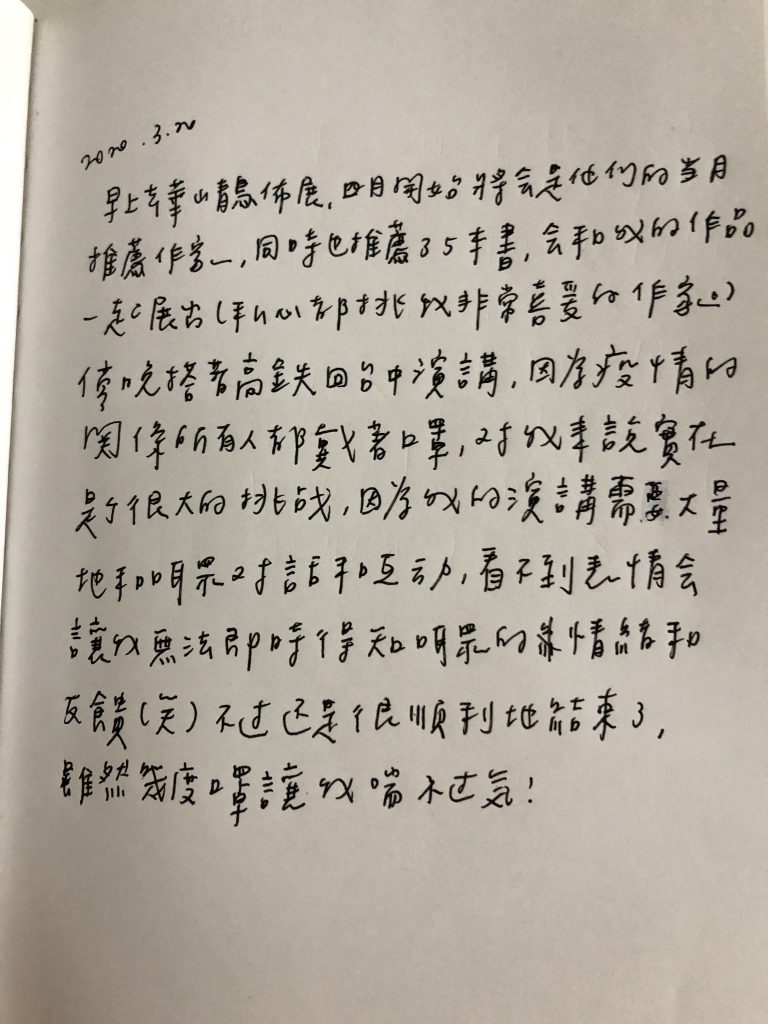 2020.3.20
早上去華山青鳥佈展,四月開始將会是他们的当月
推薦作家,同時也推薦35本書,会和我的作品
一起展出(私心都挑我非常喜爱的作家)
傍晚搭著高鉄回台中演講,因为疫情的
関係所有人都戴著口罩,对我来說實在
是个很大的挑战,因为我的演講需要大量
地和听眾对話和互动,看不到表情会
讓我無法即時得知听眾的情緒和
反饋(笑)不过还是很順利地結束了,
雖然幾度口罩讓我喘不过気!